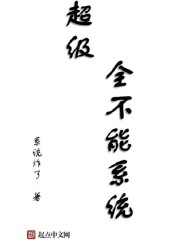 超级
全不能系统
系统炸了 著
起点中文网